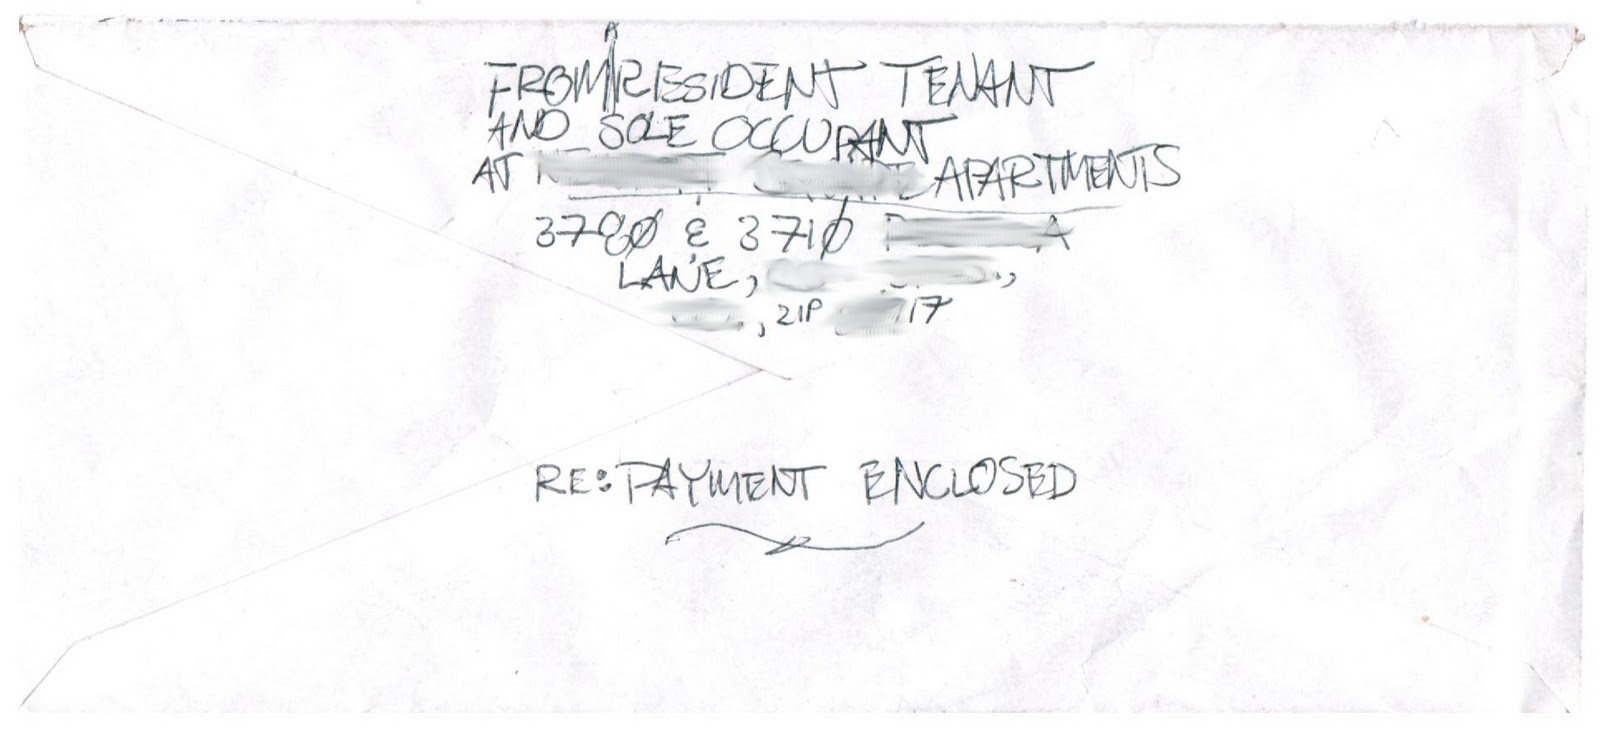 FROM RESIDENT TENANT
AND SOLE OCCUPANT
AT APARTMENTS
3780 & 3710
LANE,
, ZIP 17
RE: PAYMENT ENCLOSED